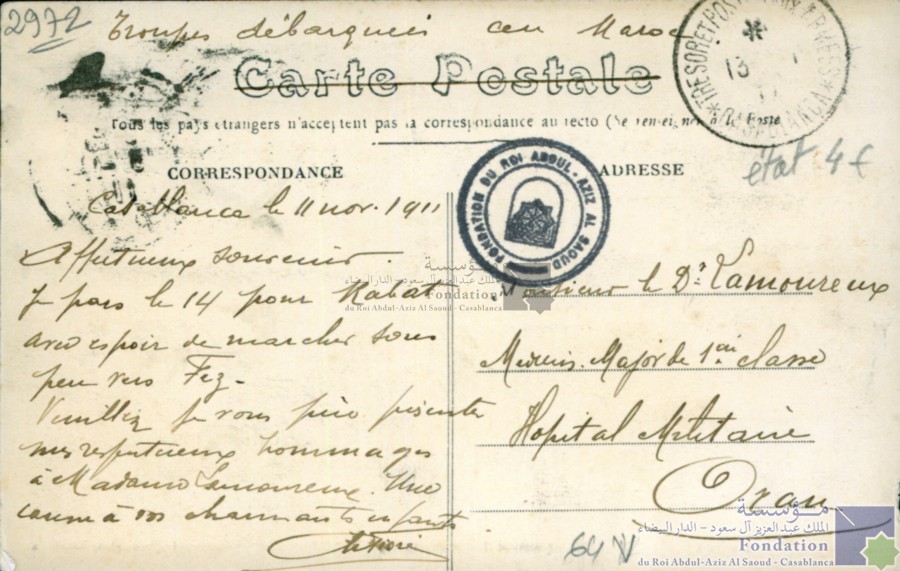 2972
Troupes débarquées au Maroc
Carte Postale
Tous les pays étrangers n'acceptent pas la correspondance au recto (Se renseigner à la Poste
TRESOR ET POSTES AUX ARMEES
* 13
* CASABLANCA *
état 4 €
CORRESPONDANCE
Casablanca le 11 nov. 1911
Affectueux souvenir.
Je pars le 14 pour Rabat
avec espoir de marcher sous
peu vers Fez.
Veuillez je vous prie présenter
mes respectueux hommages
à Madame Lamoureux. Une
caresse à vos charmants enfants
FONDATION DU ROI ABDUL-AZIZ AL SAOUD
ADRESSE
Monsieur le Dr Lamoureux
Médecin-Major de 1ère classe
Hopital Militaire
Oran
64
مؤسسة
الملك عبد العزيز آل سعود - الدار البيضاء
Fondation
du Roi Abdul-Aziz Al Saoud - Casablanca
مؤسسة
الملك عبد العزيز آل سعود - الدار البيضاء
Fondation
du Roi Abdul-Aziz Al Saoud - Casablanca